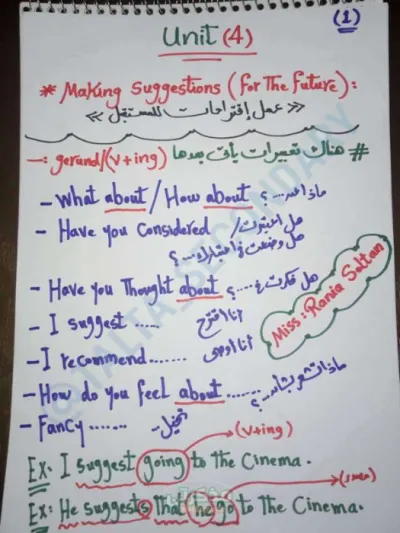 (1)
Unit (4)
* Making Suggestions (For The Future):
« عمل إقتراحات للمستقبل »
# هناك تعبيرات يأتى بعدها gerund/(v+ing) :-
- What about / How about ......؟ ماذا عن
- Have you Considered / هل اعتبرت
هل وضعت فى اعتبارك ...؟
- Have you Thought about ......؟ هل فكرت فى
- I suggest ..... أنا أقترح
- I recommend....... أنا أوصى
- How do you feel about ....... ماذا تشعر بشأن ...؟
- Fancy ....... تخيل-
Miss: Rania Soltan
(v+ing)
Ex: I suggest going to The Cinema.
Ex: He suggests That he go to The Cinema.
@TALTA_SECONDARY